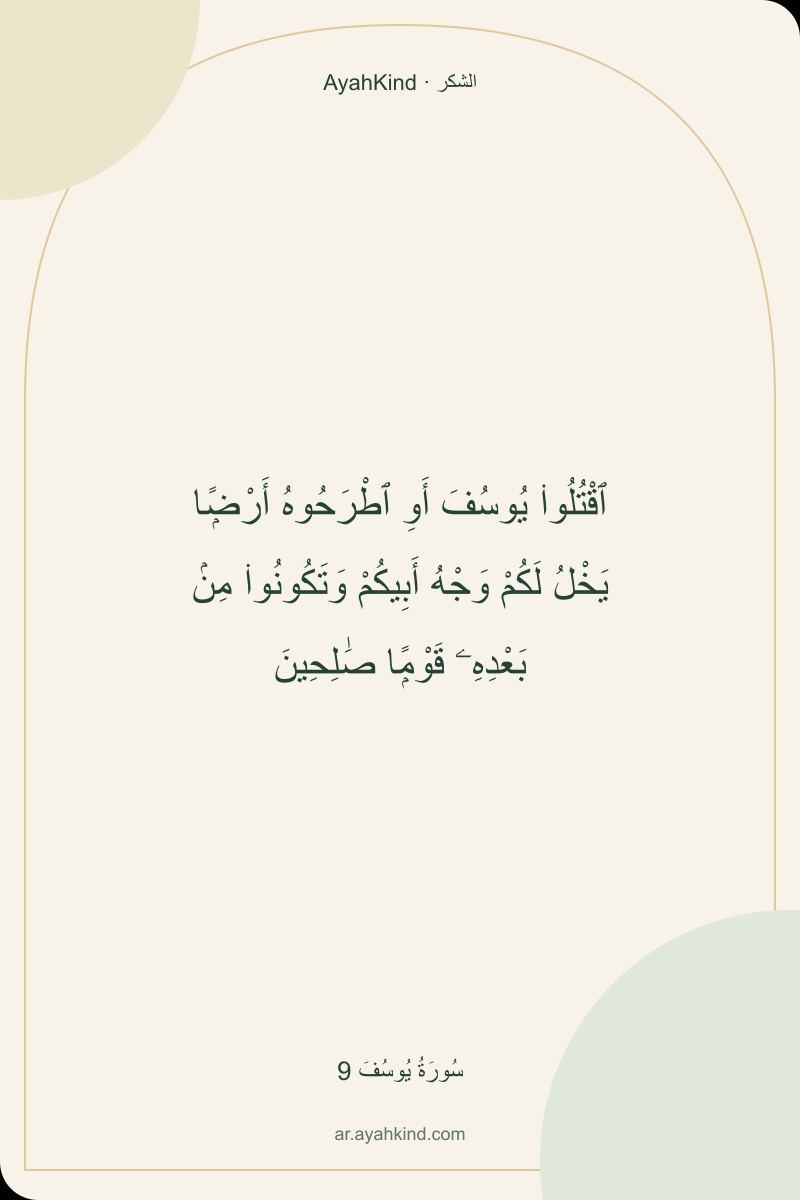 AyahKind · الشكر
ٱقْتُلُوا۟ يُوسُفَ أَوِ ٱطْرَحُوهُ أَرْضًۭا
يَخْلُ لَكُمْ وَجْهُ أَبِيكُمْ وَتَكُونُوا۟ مِنۢ
بَعْدِهِۦ قَوْمًۭا صَٰلِحِينَ
سُورَةُ يُوسُفَ 9
ar.ayahkind.com